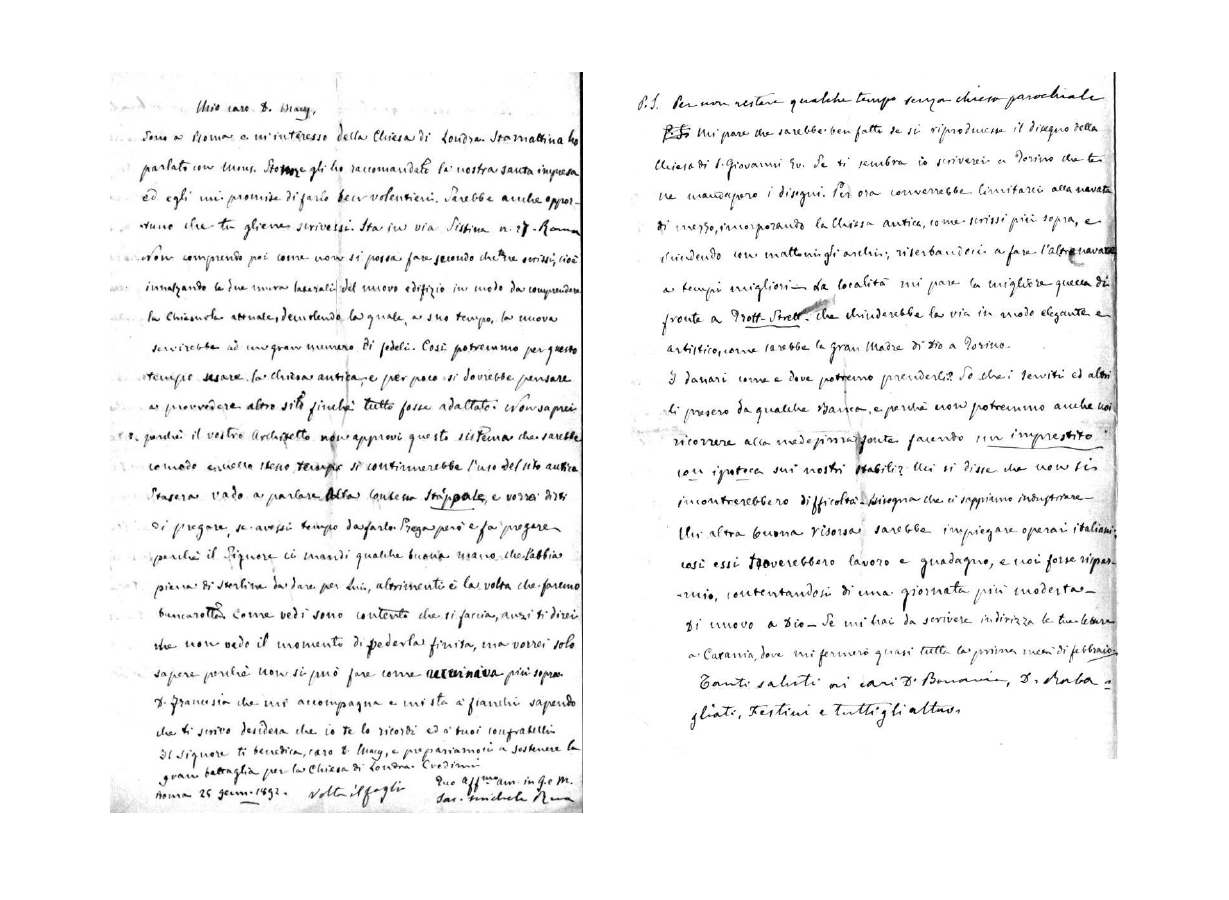 Mio caro D. Macy,
Sono a Roma e m'interesso della Chiesa di Londra. Stamattina ho
parlato con Mons. Stonor gli ho raccomandata la nostra santa impresa
ed egli mi promise di farlo ben volentieri. Sarebbe anche oppor-
tuno che tu gliene scrivessi. Sta in via Sistina n. 27 - Roma
Non comprendo poi come non si possa fare secondo che te ne scrissi, cioè
innalzando le due mura laterali del nuovo edifizio in modo da comprendere
la Chiesuola attuale, demolendo la quale, a suo tempo, la nuova
servirebbe ad un gran numero di fedeli. Così potremmo per questo
tempo usare la Chiesa antica, e per poco si dovrebbe pensare
a provvedere altro sito finchè tutto fosse adattato. Non saprei
perchè il vostro Architetto non approvi questo sistema che sarebbe
comodo e nello stesso tempo si continuerebbe l'uso del sito antico
Stasera vado a parlare alla Contessa Stappale, e vorrei dirti
di pregare, se avessi tempo da farlo. Prega però e fa pregare
perchè il Signore ci mandi qualche buona mano che l'abbia
piena di sterline da dare per Lui, altrimenti è la volta che faremo
bancarotta. Come vedi sono contento che si faccia, anzi ti direi
che non vedo il momento di vederla finita, ma vorrei solo
sapere perchè non si può fare come accennava più sopra.
D. Francesia che mi accompagna e mi sta a' fianchi sapendo
che ti scrivo desidera che io te lo ricordi ed a' tuoi confratelli
Il Signore ti benedica, caro D. Macy, e prepariamoci a sostenere la
gran battaglia per la Chiesa di Londra. Credimi
Tuo aff.mo am. in G. e M.
Roma 25 genn. 1892. Volta il foglio
Sac. Michele Rua
P.S. Per non restare qualche tempo senza chiesa parochiale
mi pare che sarebbe ben fatto se si riproducesse il disegno della
Chiesa di S. Giovanni Ev. Se ti sembra io scriverei a Torino che te
ne mandassero i disegni. Per ora converrebbe limitarci alla navata
di mezzo, incorporando la Chiesa antica, come scrissi più sopra, e
chiudendo con mattoni gli archi, riserbandoci a fare l'altre navate
a tempi migliori - La località mi pare la migliore quella di
fronte a Trott-Strett - che chiuderebbe la via in modo elegante e
artistico, come sarebbe la Gran Madre di Dio a Torino.
I danari come e dove potremo prenderli? So che i Serviti ed altri
li presero da qualche Banca, e perchè non potremmo anche noi
ricorrere alla medesima fonte facendo un imprestito
con ipoteca sui nostri stabili? Mi si disse che non si
incontrerebbero difficoltà - Bisogna che ci sappiamo industriare -
Un'altra buona risorsa sarebbe impiegare operai italiani:
così essi troverebbero lavoro e guadagno, e noi forse rispar-
-mio, contentandosi di una giornata più modesta -
Di nuovo a Dio - Se mi hai da scrivere indirizza le tue lettere
a Catania, dove mi fermerò quasi tutta la prima metà di febbraio.
Tanti saluti ai cari D. Bonavia, D. Raba-
gliati, Festini e tutti gli altri.